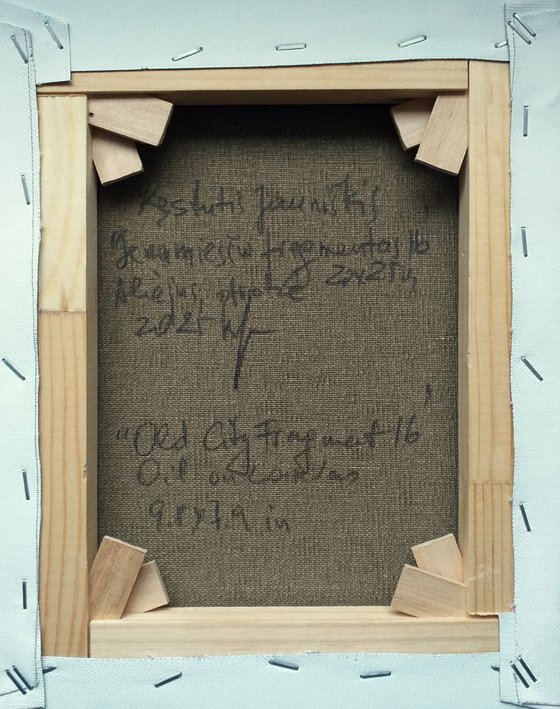 Kęstutis Jauniškis
"Senamiesčio fragmentas 16
Aliejus, drobė
2025 m
"Old City Fragment 16"
Oil on canvas
9.8 x 7.9 in